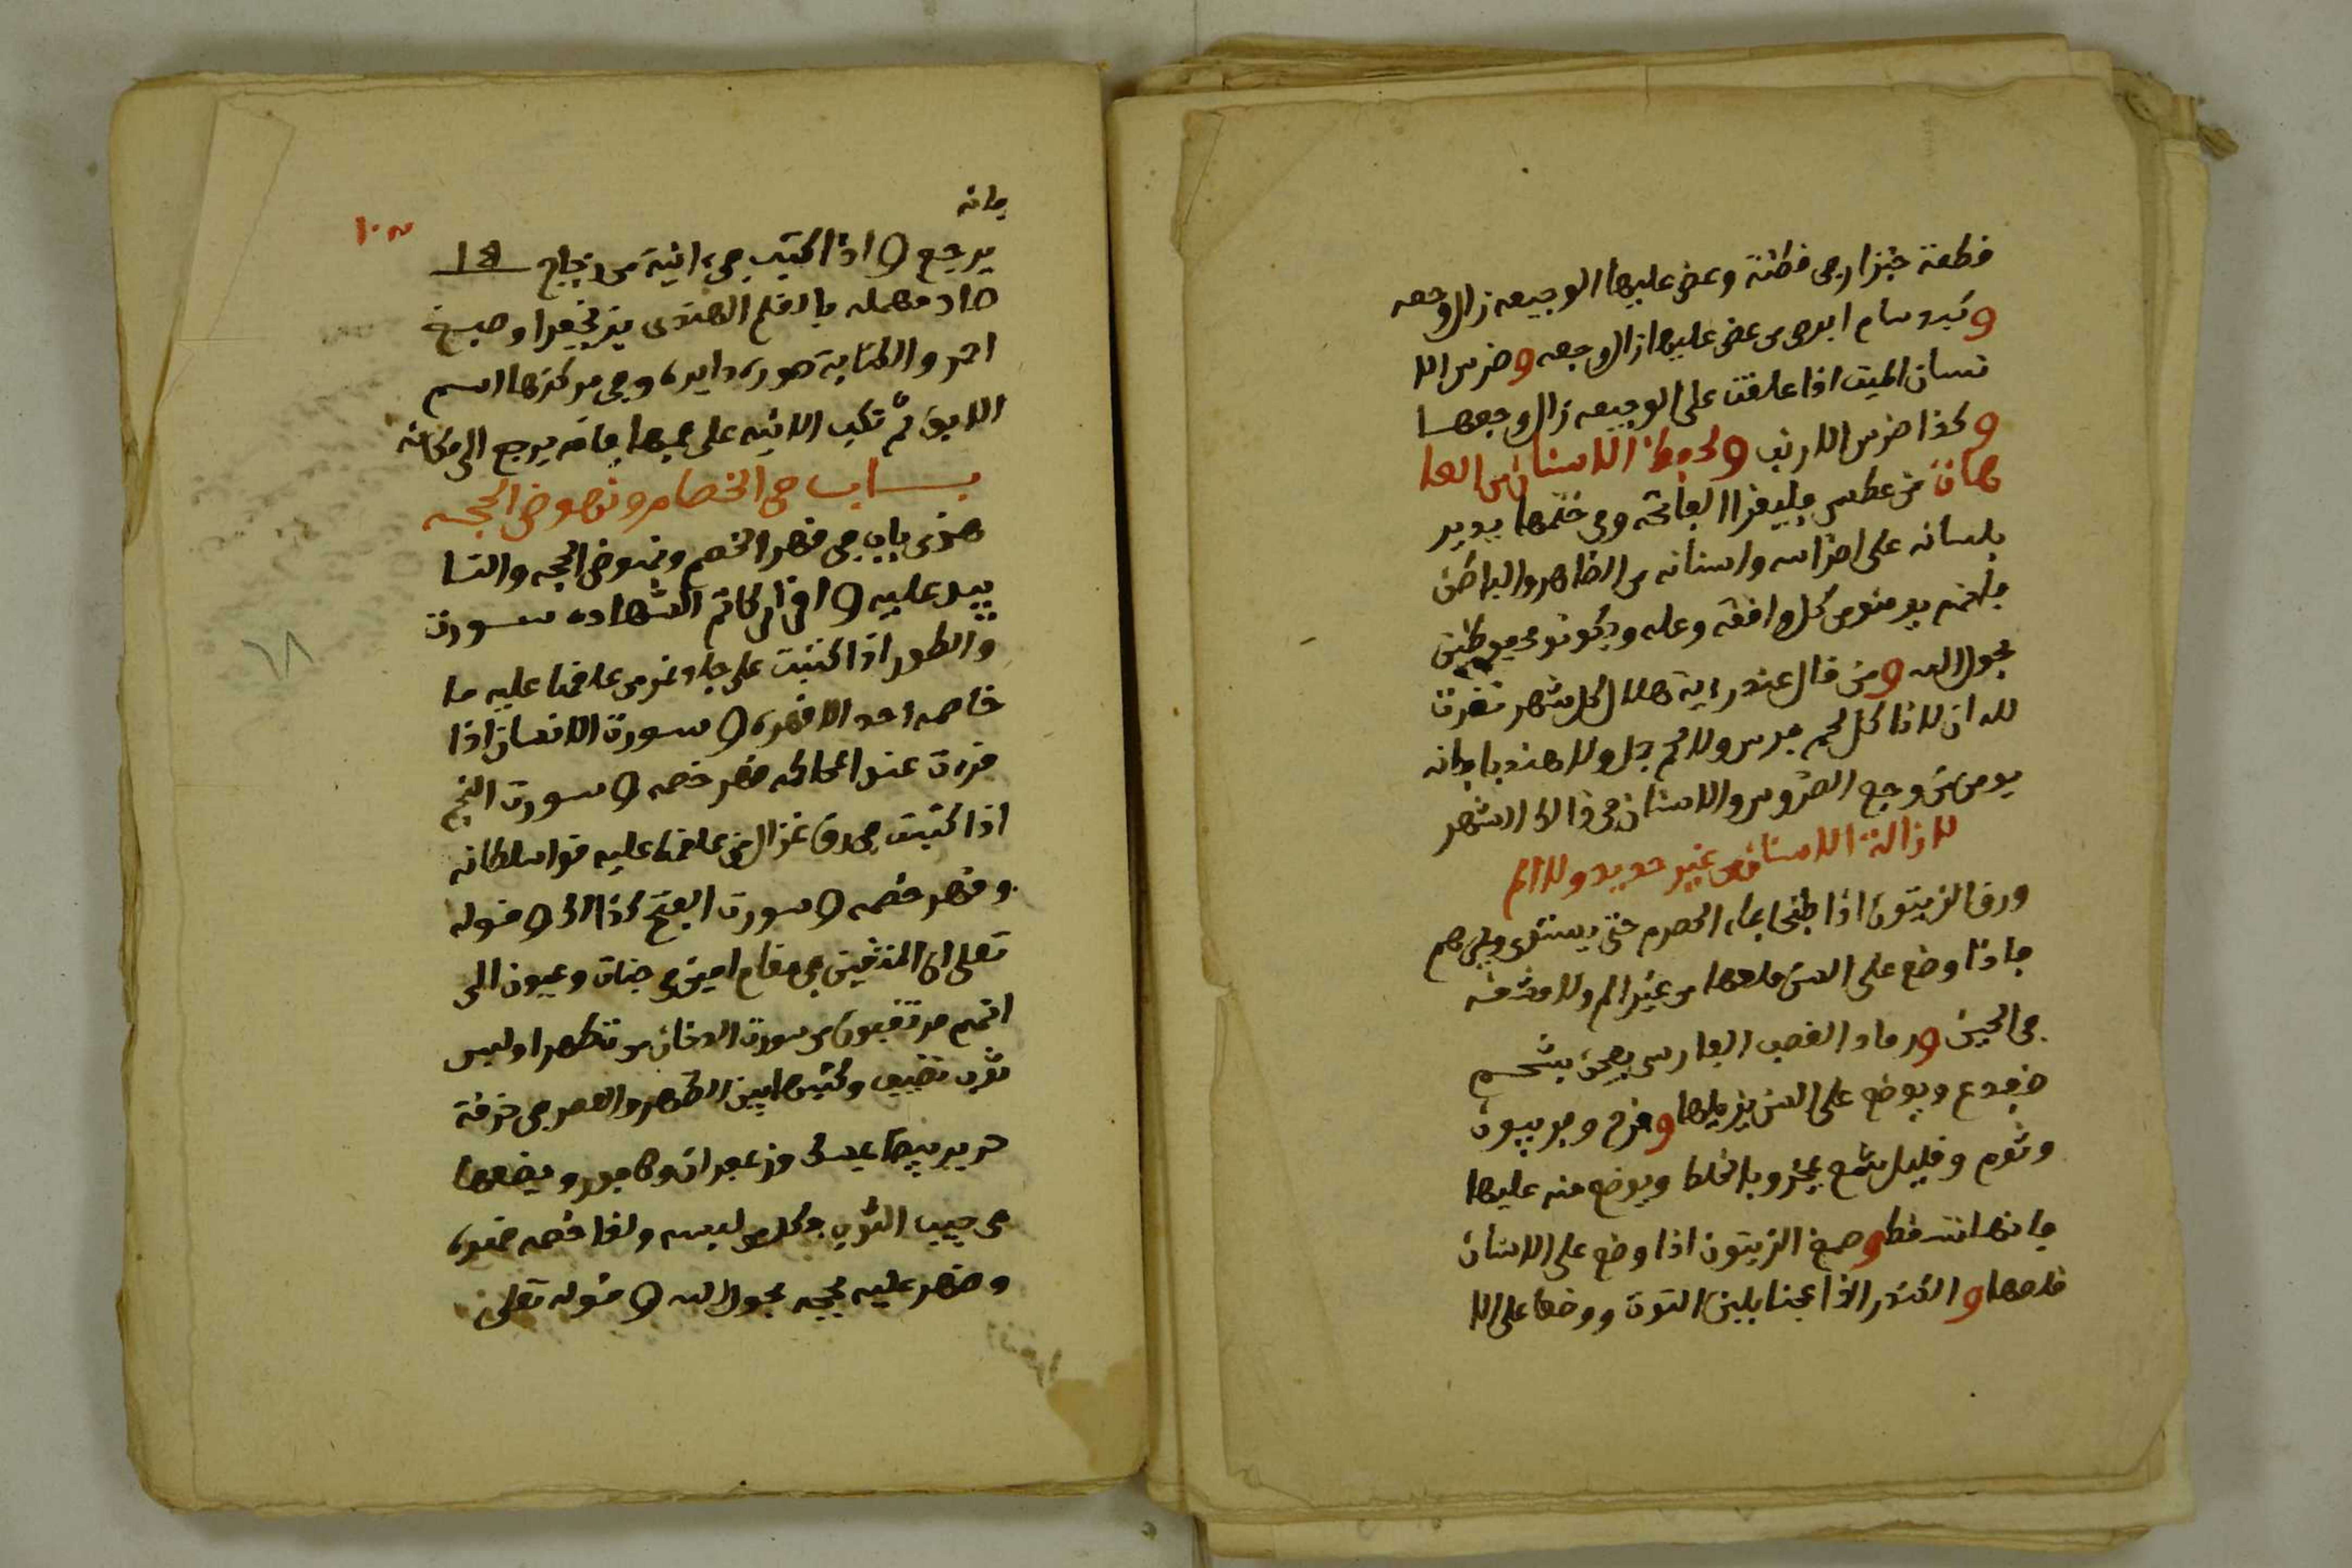 قطعة خبز او في قطنة وعض عليها الوجيعه زال وجعه
وكبد سام ابرص من عض عليها زال وجعه وضرس الا
نسان الميت اذا علقت على الوجيعه زال وجعها
وكذا ضرس الارنب ولحفظ الاسنان من العا
هات من عطس فليقرا الفاتحه وفي ختمها يدير
بلسانه على اضراسه واسنانه من الظاهر والباطن
فانه يومنو من كل وافقه وعله ويكونو محفوظين
بحول الله ومن قال عند رءية هلال كل شهر نذرت
لله ان لا ناكل لحم فرس ولا لحم جمل ولا هندبا فانه
يومن من وجع الضروس والاسنان في ذالك الشهر
لازالة الاسنان من غير حديد ولا الم
ورق الزيتون اذا طبخ بماء الحصرم حتى
فاذا وضع على السن قلعها من غير الم ولا مشقه
في الحين ورماد القصب الفارسي يعجن بشحم
ضفدع ويوضع على السن يزيلها وقرح وفربيون
وثوم وقليل شمع يمخر وبالخلط ويوضع منه عليها
فانها تسقط وصمغ الزيتون اذا وضع على الاسنان
قلعها والكندر اذا عجنا بلبن التوت ووضعا على الا
فانه
يرجع و اذا كتب في ءانية من زجاج
صاد مهمله بالقلم الهندي بزنجفر او صبغ
احمر والكتابة صورة دايرة وفي مركزها اسم
الابق ثم تكب الانيه على فمها فانه يرجع الى مكانه
بــاب في الخصام ونهوض الحجه
هذى باب في قهر الخصم ونهوض الحجه والتسا
الشهاده سورة
والطور اذا كتبت على جلد نمر من علقها عليه ما
خاصمه احد الا قهره و سورة الانسان اذا
قرءت عند المحاكمه قهر خصمه و سورة النجم
اذا كتبت في رق غزال من علقها عليه قوا سلطانه
وقهر خصمه و سورة الفتح كذالك و قوله
تعلى ان المتقين في مقام امين في جنات وعيون الى
انهم مرتقبون من سورة الدخان من تطهر اولبس
ثوب نظيف وكتبها بين الظهر والعصر في خرقة
حرير بيضا بمسك وزعفران وكافور ويضعها
في جيب الثوب فكل من لبسه ولقا خصمه قهره
وضهر عليه بحجه بحول الله و قوله تعلى